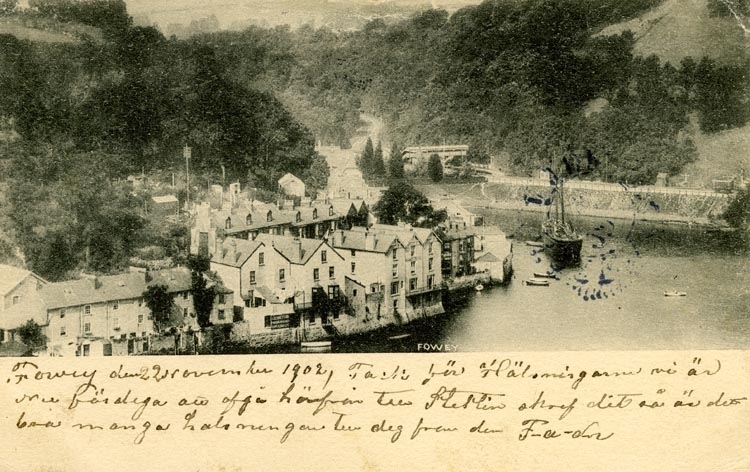 FOWEY
Fowey den 22 November 1902, Tack för Hälsningarne vi är
nu färdiga att afgå härifrån till Stettin skref dit så är det
bra många hälsningar till dig från den F-a-dor